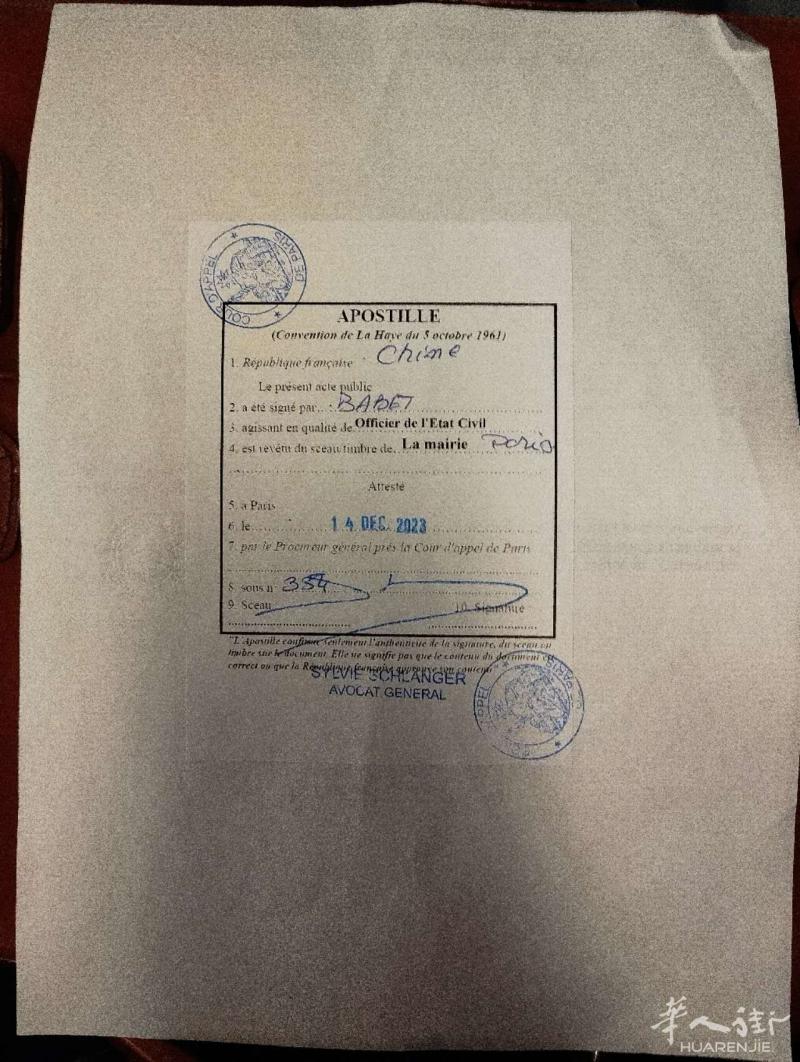 COUR D'APPEL DE PARIS
APOSTILLE
(Convention de La Haye du 5 octobre 1961)
1. République française Chine
Le présent acte public
2. a été signé par BABET
3. agissant en qualité de Officier de l'Etat Civil
4. est revêtu du sceau timbre de La mairie Paris
Attesté
5. à Paris
6. le 14 DEC. 2023
7. par le Procureur général près la Cour d'appel de Paris
8. sous n° 354
9. Sceau 10. Signature
"L'Apostille confirme seulement l'authenticité de la signature, du sceau ou
timbre sur le document. Elle ne signifie pas que le contenu du document est
correct ou que la République française approuve son contenu."
SYLVIE SCHLANGER
AVOCAT GENERAL
華人街
HUARENJIE